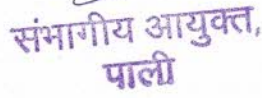 संभागीय आयुक्त,
पाली